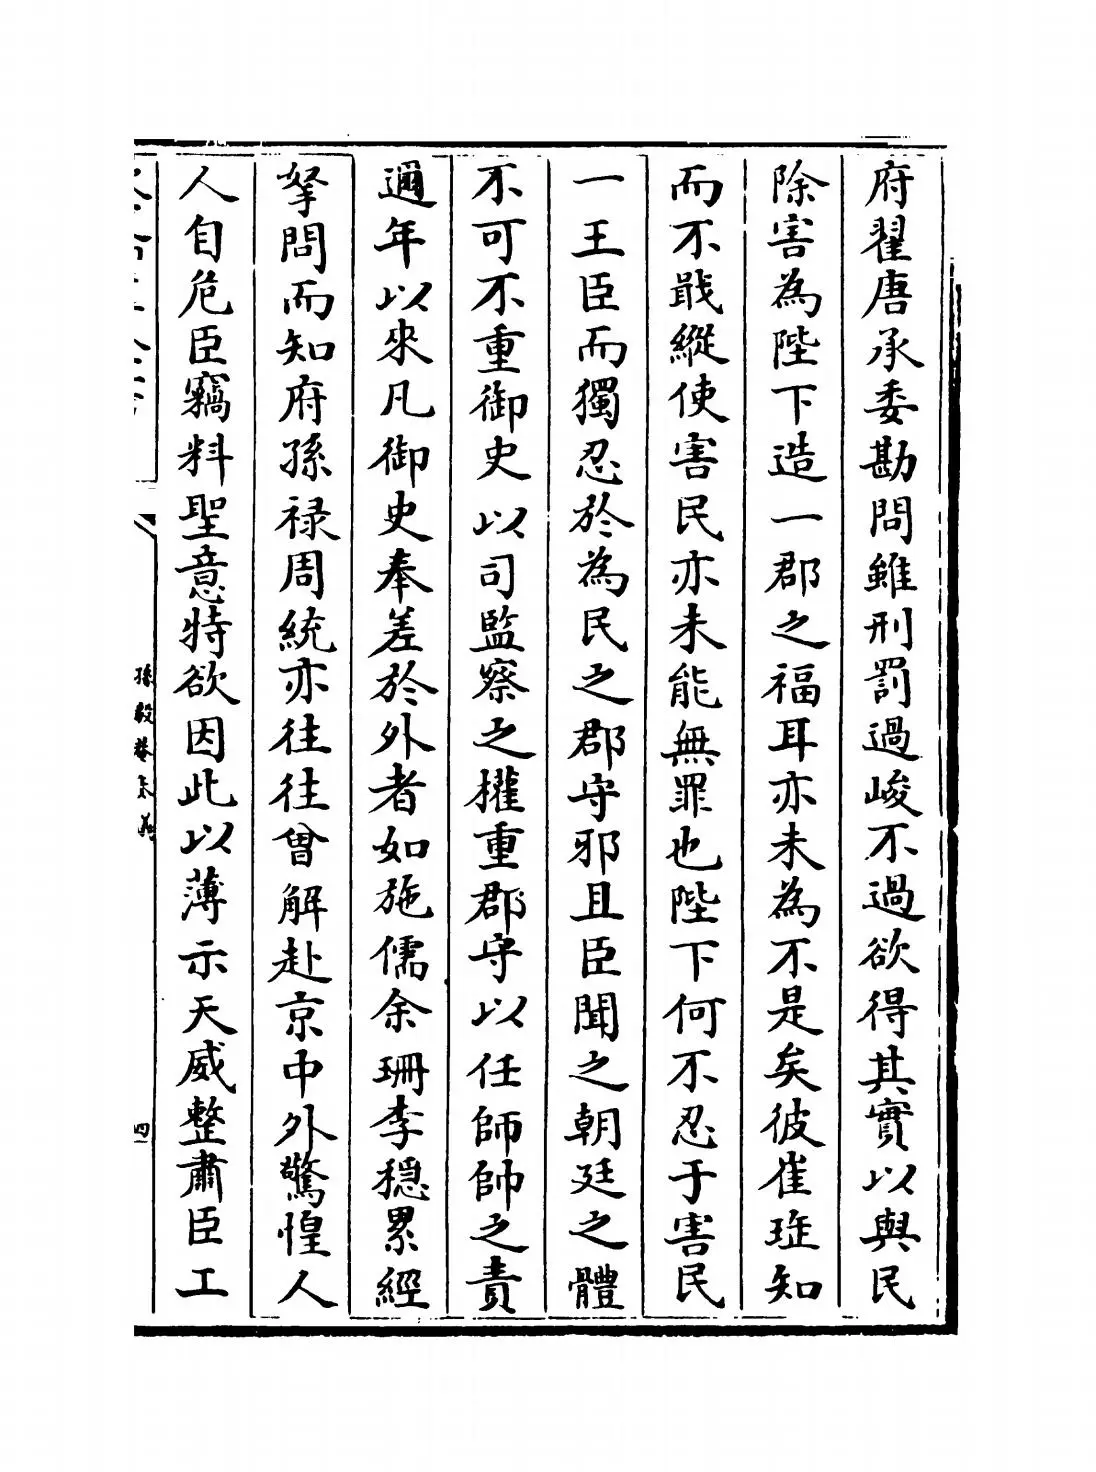 府翟唐承委勘問雖刑罰過峻不過欲得其實以與民
除害為陛下造一郡之福耳亦未為不是矣彼崔琟知
而不戢縱使害民亦未能無罪也陛下何不忍于害民
一王臣而獨忍於為民之郡守邪且臣聞之朝廷之體
不可不重御史以司監察之權重郡守以任師帥之責
邇年以來凡御史奉差於外者如施儒余珊李穩累經
拏問而知府孫禄周統亦往往曾解赴京中外驚惶人
人自危臣竊料聖意特欲因此以薄示天威整肅臣工
孫毅菴奏議
四